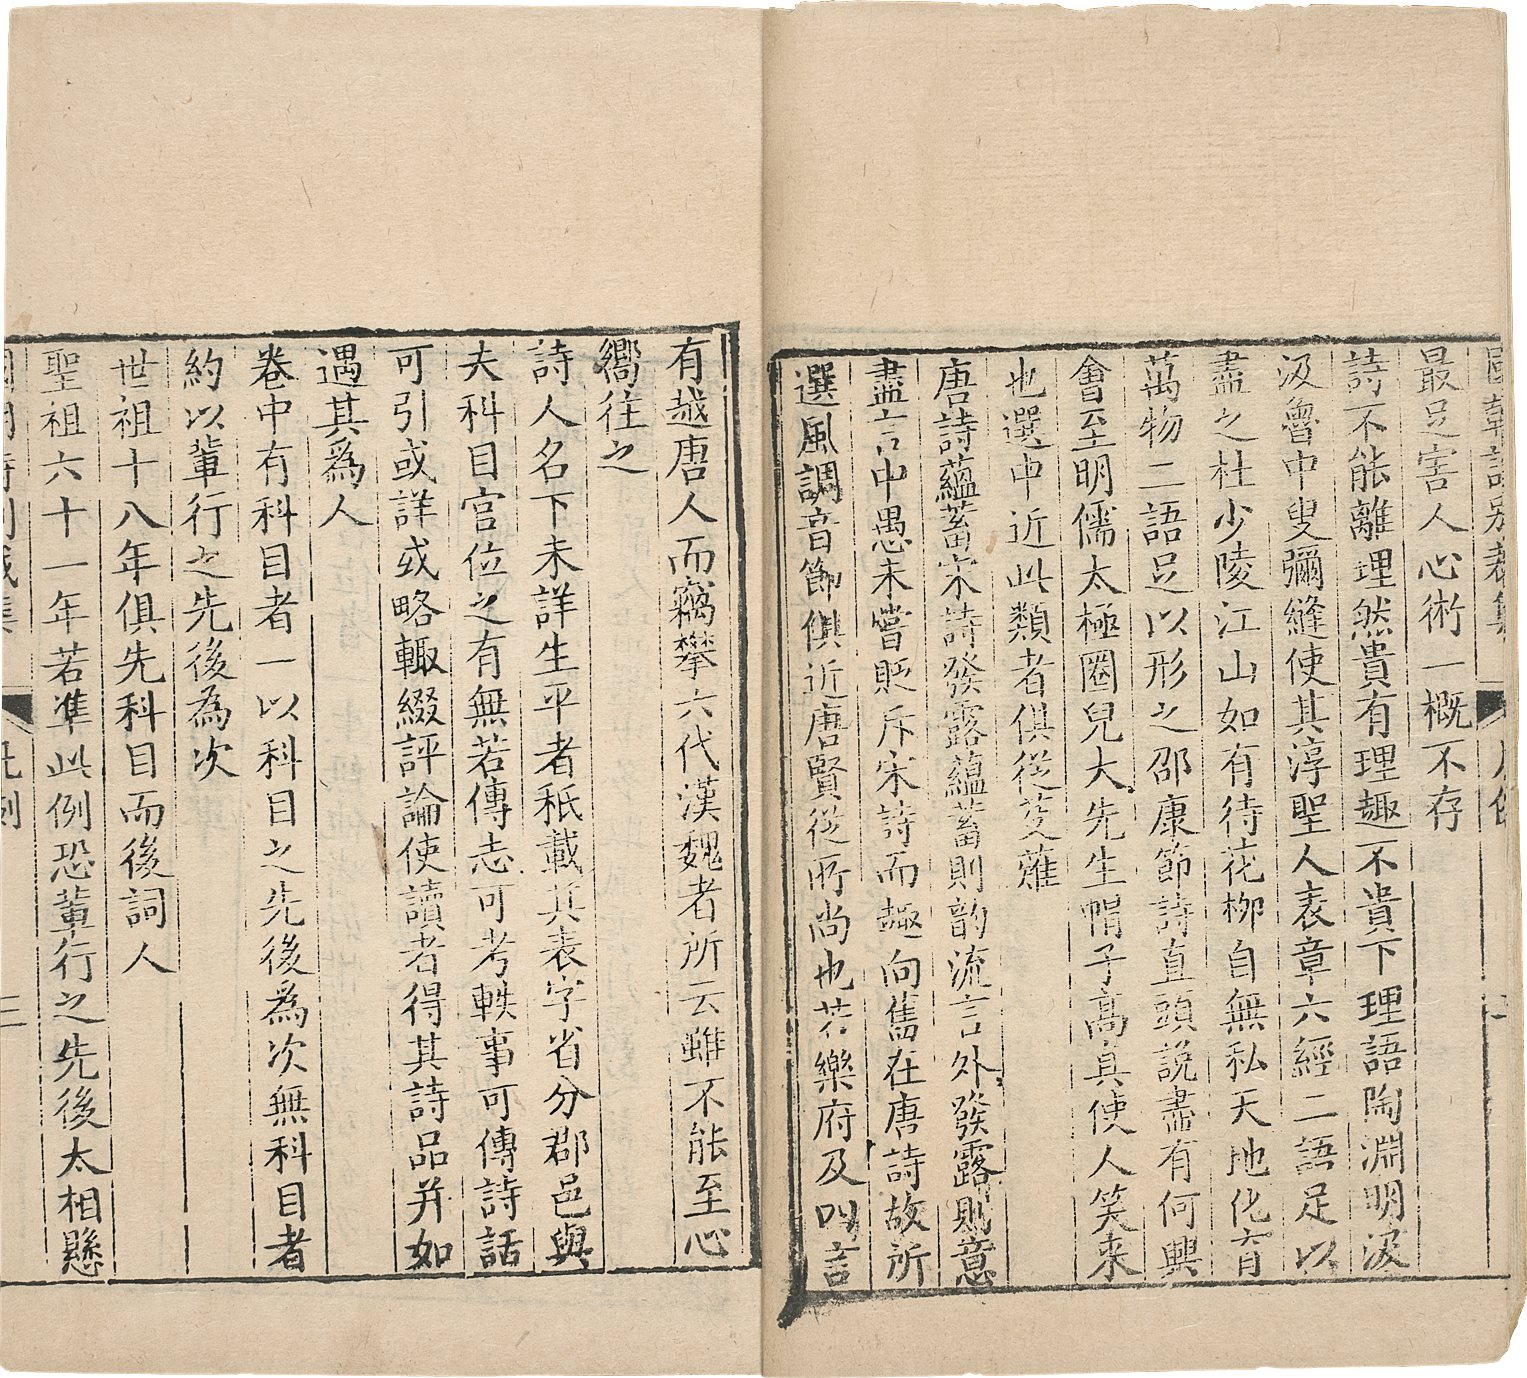 最足害人心術一概不存
詩不能離理然貴有理趣不貴下理語陶淵明汲
汲魯中叟彌縫使其淳聖人表章六經二語足以
盡之杜少陵江山如有待花柳自無私天地化育
萬物二語足以形之邵康節詩直頭說盡有何興
會至明儒太極圈兒大先生帽子高真使人笑來
也選中近此類者俱從芟薙
唐詩蘊蓄宋詩發露蘊蓄則韵流言外發露則意
盡言中愚未嘗貶斥宋詩而趣向舊在唐詩故所
選風調音節俱近唐賢從所尚也若樂府及四言
有越唐人而竊攀六代漢魏者所云雖不能至心
嚮往之
詩人名下未詳生平者秪載其表字省分郡邑與
夫科目官位之有無若傳志可考軼事可傳詩話
可引或詳或略輙綴評論使讀者得其詩品并如
遇其爲人
卷中有科目者一以科目之先後爲次無科目者
約以軰行之先後為次
世祖十八年俱先科目而後詞人
聖祖六十一年若準此例恐軰行之先後太相懸